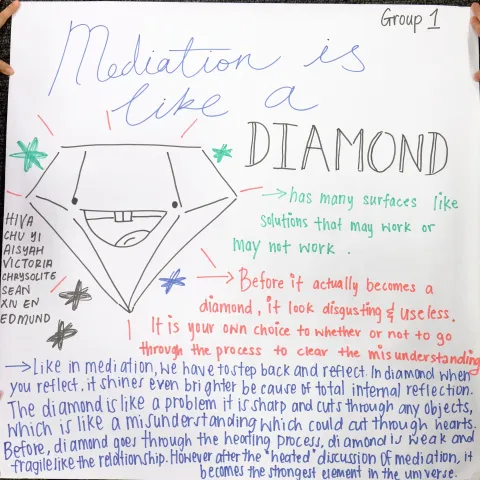 Group 1
Mediation is
like a
DIAMOND
→ has many surfaces like
solutions that may work or
may not work.
HIVA
CHU YI
AISYAH
VICTORIA
CHRYSOLITE
SEAN
XIU EN
EDMUND
→ Before it actually becomes a
diamond, it look disgusting & useless.
It is your own choice to whether or not to go
through the process to clear the misunderstanding
→ Like in mediation, we have to step back and reflect. In diamond when
you reflect, it shines even brighter because of total internal reflection.
The diamond is like a problem it is sharp and cuts through any objects,
which is like a misunderstanding which could cut through hearts.
Before, diamond goes through the heating process, diamond is weak and
fragile like the relationship. However after the "heated" discussion of mediation, it
becomes the strongest element in the universe.